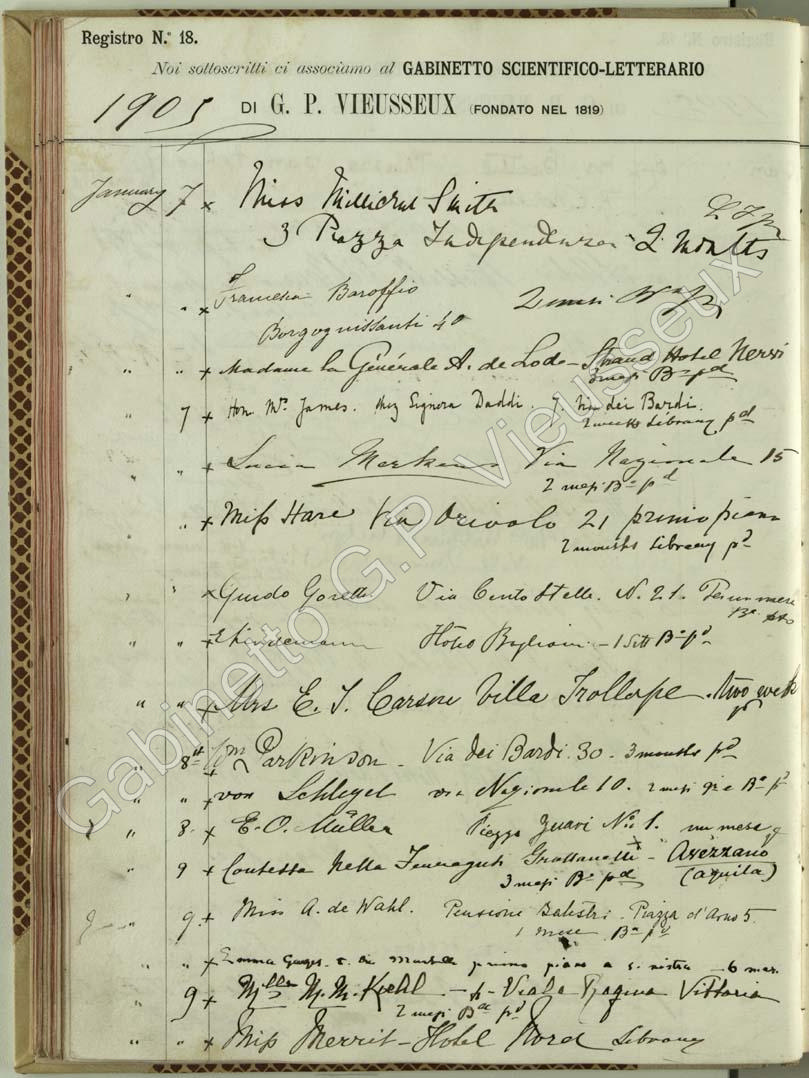 Registro N.º 18.
Noi sottoscritti ci associamo al GABINETTO SCIENTIFICO-LETTERARIO
1905 DI G. P. VIEUSSEUX (FONDATO NEL 1819)
January 7 x Miss Millicent Smith
3 Piazza Indipendenza 2 months
" " x Francesca Baroffio 2 mesi
Borgognissanti 40
" " x Madame la Générale A. de Lode - Strand Hotel Nervi
3 mesi Bª pd
7 x Hon. Mrs James. chez Signora Daddi. 7. Via dei Bardi.
2 weeks Library pd
" " x Lucia Via Nazionale 15
2 mesi Bª pd
" x Miss Hare Via Orivolo 21 primo piano
2 months Library pd
" " x Guido Goretti Via Cento Stelle. N. 21. Per un mese
Bª
" " x Lindemann Hotel Baglioni - 1 Sett Bª pd
" " x Mrs E. S. Carson Villa Trollope. two week
pd
" 8 x Wm Parkinson - Via dei Bardi. 30 - 3 months pd
" " x von Schlegel via Nazionale 10. 2 mesi Bª pd
" 8. x E. O. Müller Piazza No 1. un mese
" 9 x Contessa Nella - Avezzano
3 mesi Bª pd (Aquila)
" 9. x Miss A. de Wahl. Pensione Balestri. Piazza d'Arno 5.
1 mese Bª pd
" " x Emma primo piano a sinistra - 6 mesi
9 x Mlle M. M. Kiehl - Viale Regina Vittoria
2 mesi Bª pd
" " x Miss Merrit - Hotel Nord Library
Gabinetto G.P. Vieusseux